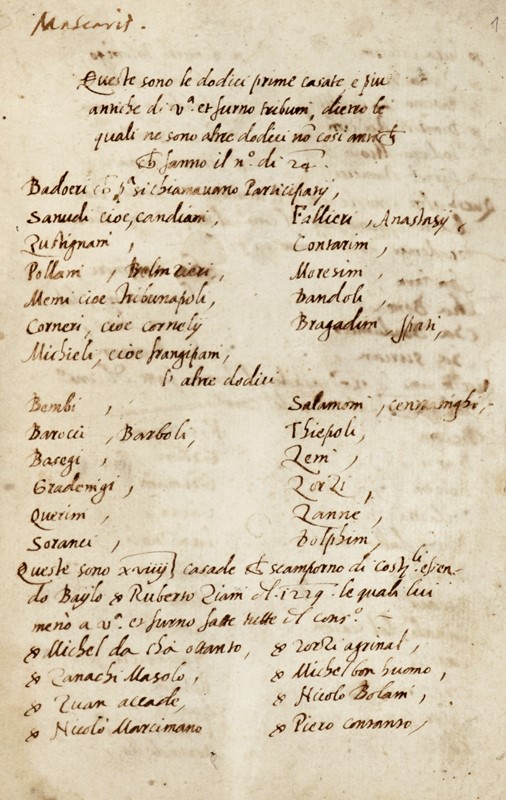 Mascaris.
1
Queste sono le dodici prime casate, e piu
antiche di v.ª et furno tribuni, dietro le
quali ne sono altre dodici nõ cosi
fanno il nº. di 24.
Badoeri si chiamauano Participatÿ,
Sanudi cioe, candiani, Fallieri, Anastasÿ,
Zustignani, Contarini,
Pollani, Moresini,
Memi cioe Tribunapoli, Dandoli,
Corneri, cioe cornelÿ Bragadini, Ipati,
Michieli, cioe frangipani,
l' altre dodici
Bembi, Salamoni,
Barocci, Barboli, Thiepoli,
Basegi, Zeni,
Gradenigi, Zorzi,
Querini, Zanne,
Soranci, Dolphini,
Queste sono xviiij casade scamporno di essen-
do Baÿlo Ruberto Ziani del .1229. le quali lui
menò a v.ª et furno fatte tutte del consº.
Michel da chà ottanto, Zorzi agrinal,
Zanachi Masolo, Michel bon huomo,
Zuan accade, Nicolo Bolani,
Nicolò Marcimano Piero